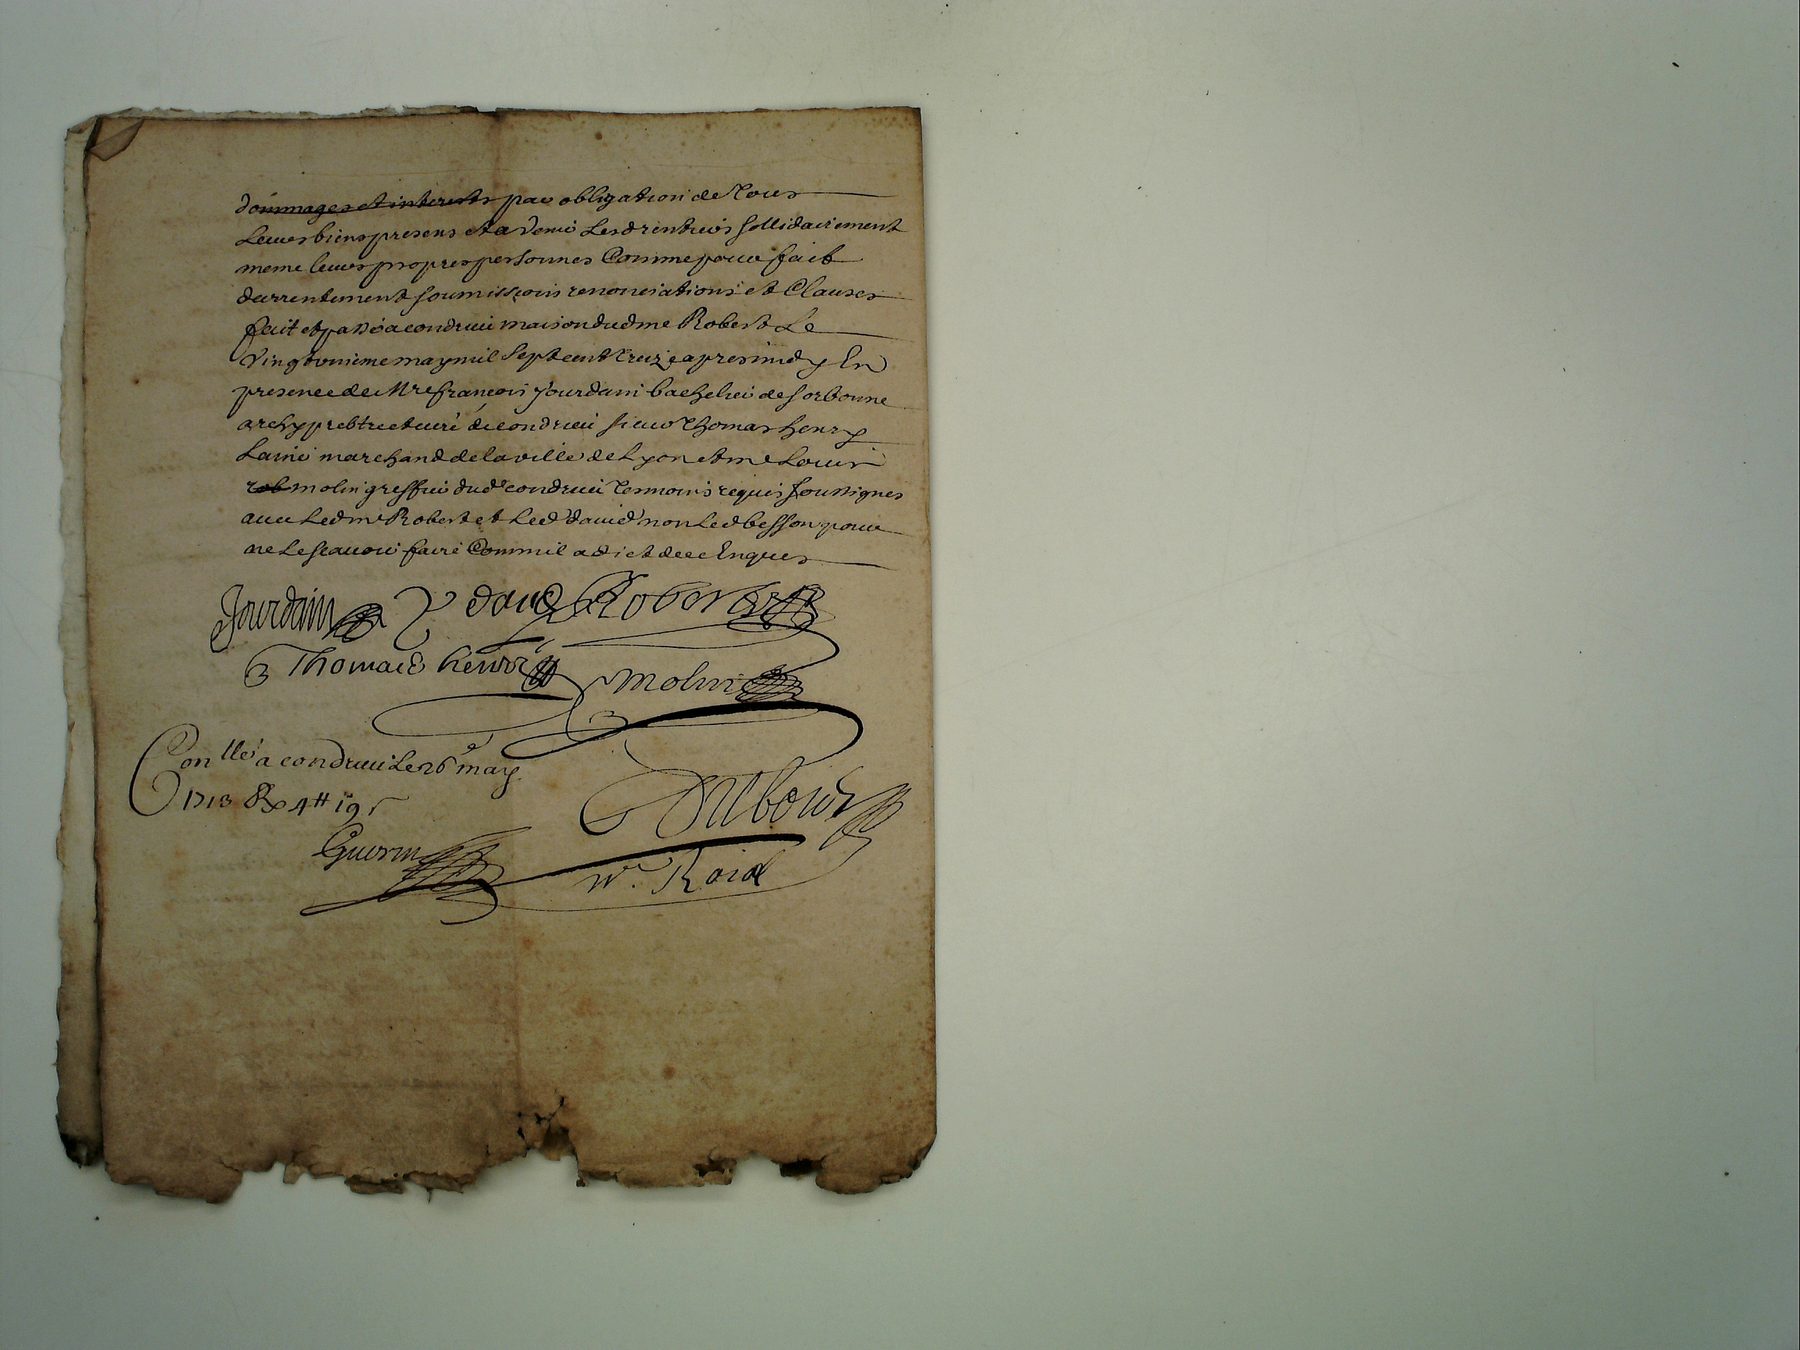 dommages et interests par obligation de tous
Leurs biens presens et a venir Lesd rentiers sollidairement
meme leurs propres personnes Comme pour fait
darrentement soumissions renonciations et Clauses
fait et passé a condrieu maison dud me Robert Le
vingt unieme may mil sept cent treize apres midy En
presence de Mre françois Jourdain bachelier de sorbonne
archyprebtre et curé de condrieu sieur Thomas henry
Lainé marchand de la ville de Lyon et me Louis
rob molin greffier dud condrieu temoins requis soussignes
avec Led me Robert et Led david non Led besson pour
ne Le scavoir faire Comme il a dit de ce Enquis
Jourdain david Robert
Thomas henry molin
Conllé a condrieu Le 26e may
1713 R 4tt 19s
Guerin Dubour
n. Roial